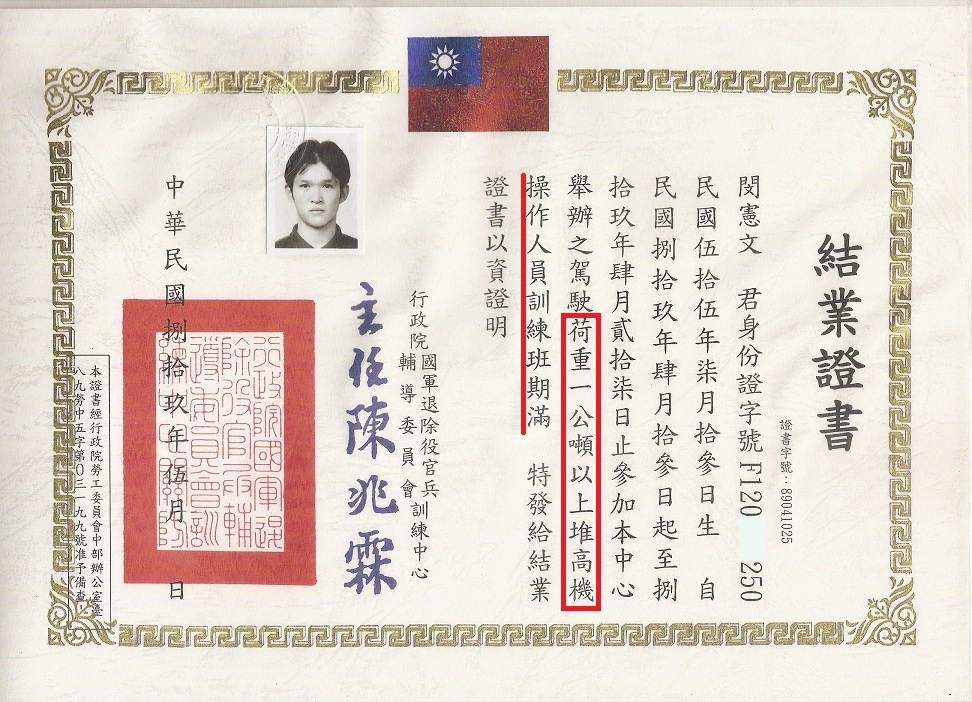 結業證書
證書字號：89041025
閔憲文 君身份證字號F120 250
民國伍拾伍年柒月拾參日生 自
民國捌拾玖年肆月拾參日起至捌
拾玖年肆月貳拾柒日止參加本中心
舉辦之駕駛荷重一公噸以上堆高機
操作人員訓練班期滿 特發給結業
證書以資證明
行政院國軍退除役官兵輔導委員會訓練中心
主任陳兆霖
行政院國軍退
除役官兵輔
導委員會訓
中華民國捌拾玖年伍月 日
本證書經行政院勞工委員會中部辦公室臺
八九勞中五字第0三一九九號准予備查。